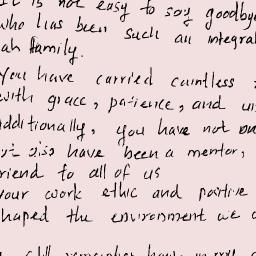 It is not easy to say goodbye
who has been such an integral
ah family.
You have carried countless
with grace, patience, and
Additionally, you have not on
but also have been a mentor,
friend to all of us
your work ethic and positive
shaped the environment we
still remember how